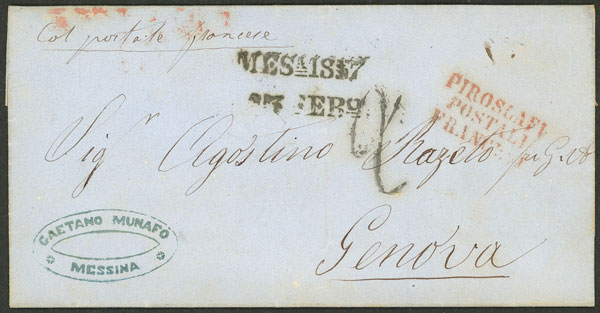 Col postale francese
MESA. 1857
FEBO.
PIROSCAFI
POSTALI
FRANCESI
Sigr Agostino Razeto
Genova
GAETANO MUNAFÒ
MESSINA